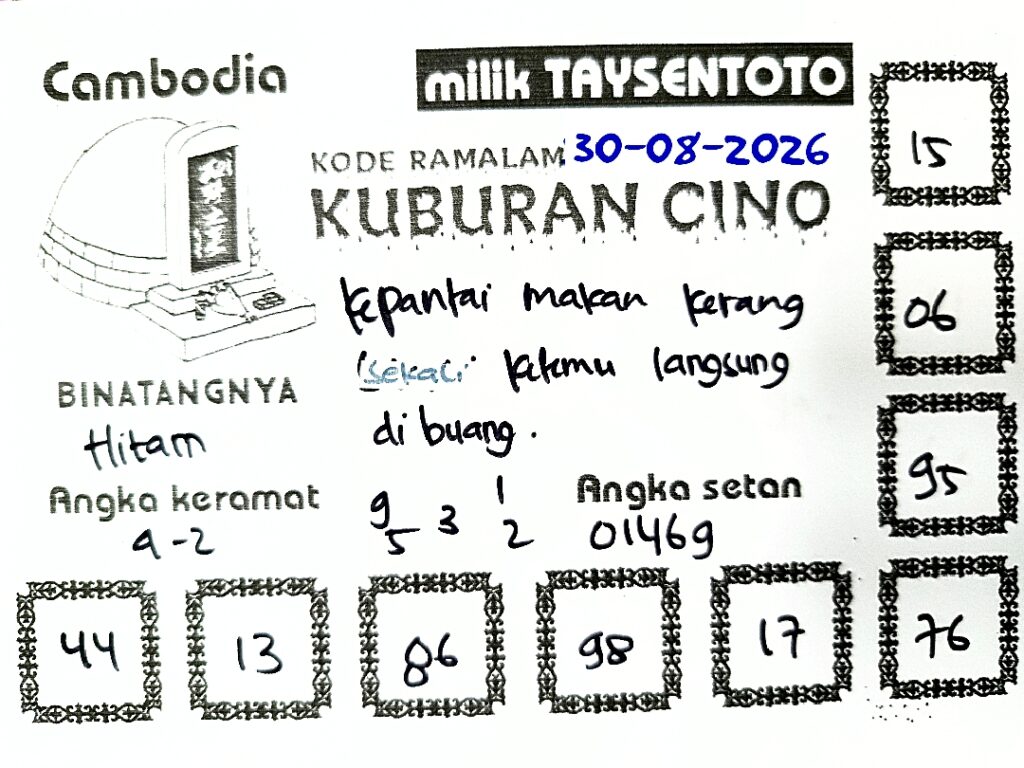 Cambodia
milik TAYSENTOTO
KODE RAMALAM: 30-08-2026
KUBURAN CINO
kepantai makan kerang
(sekali ketemu langsung
di buang.
BINATANGNYA
Hitam
Angka keramat
9-2
9 3 1
5 2
Angka setan
01469
15
06
95
76
44
13
86
98
17